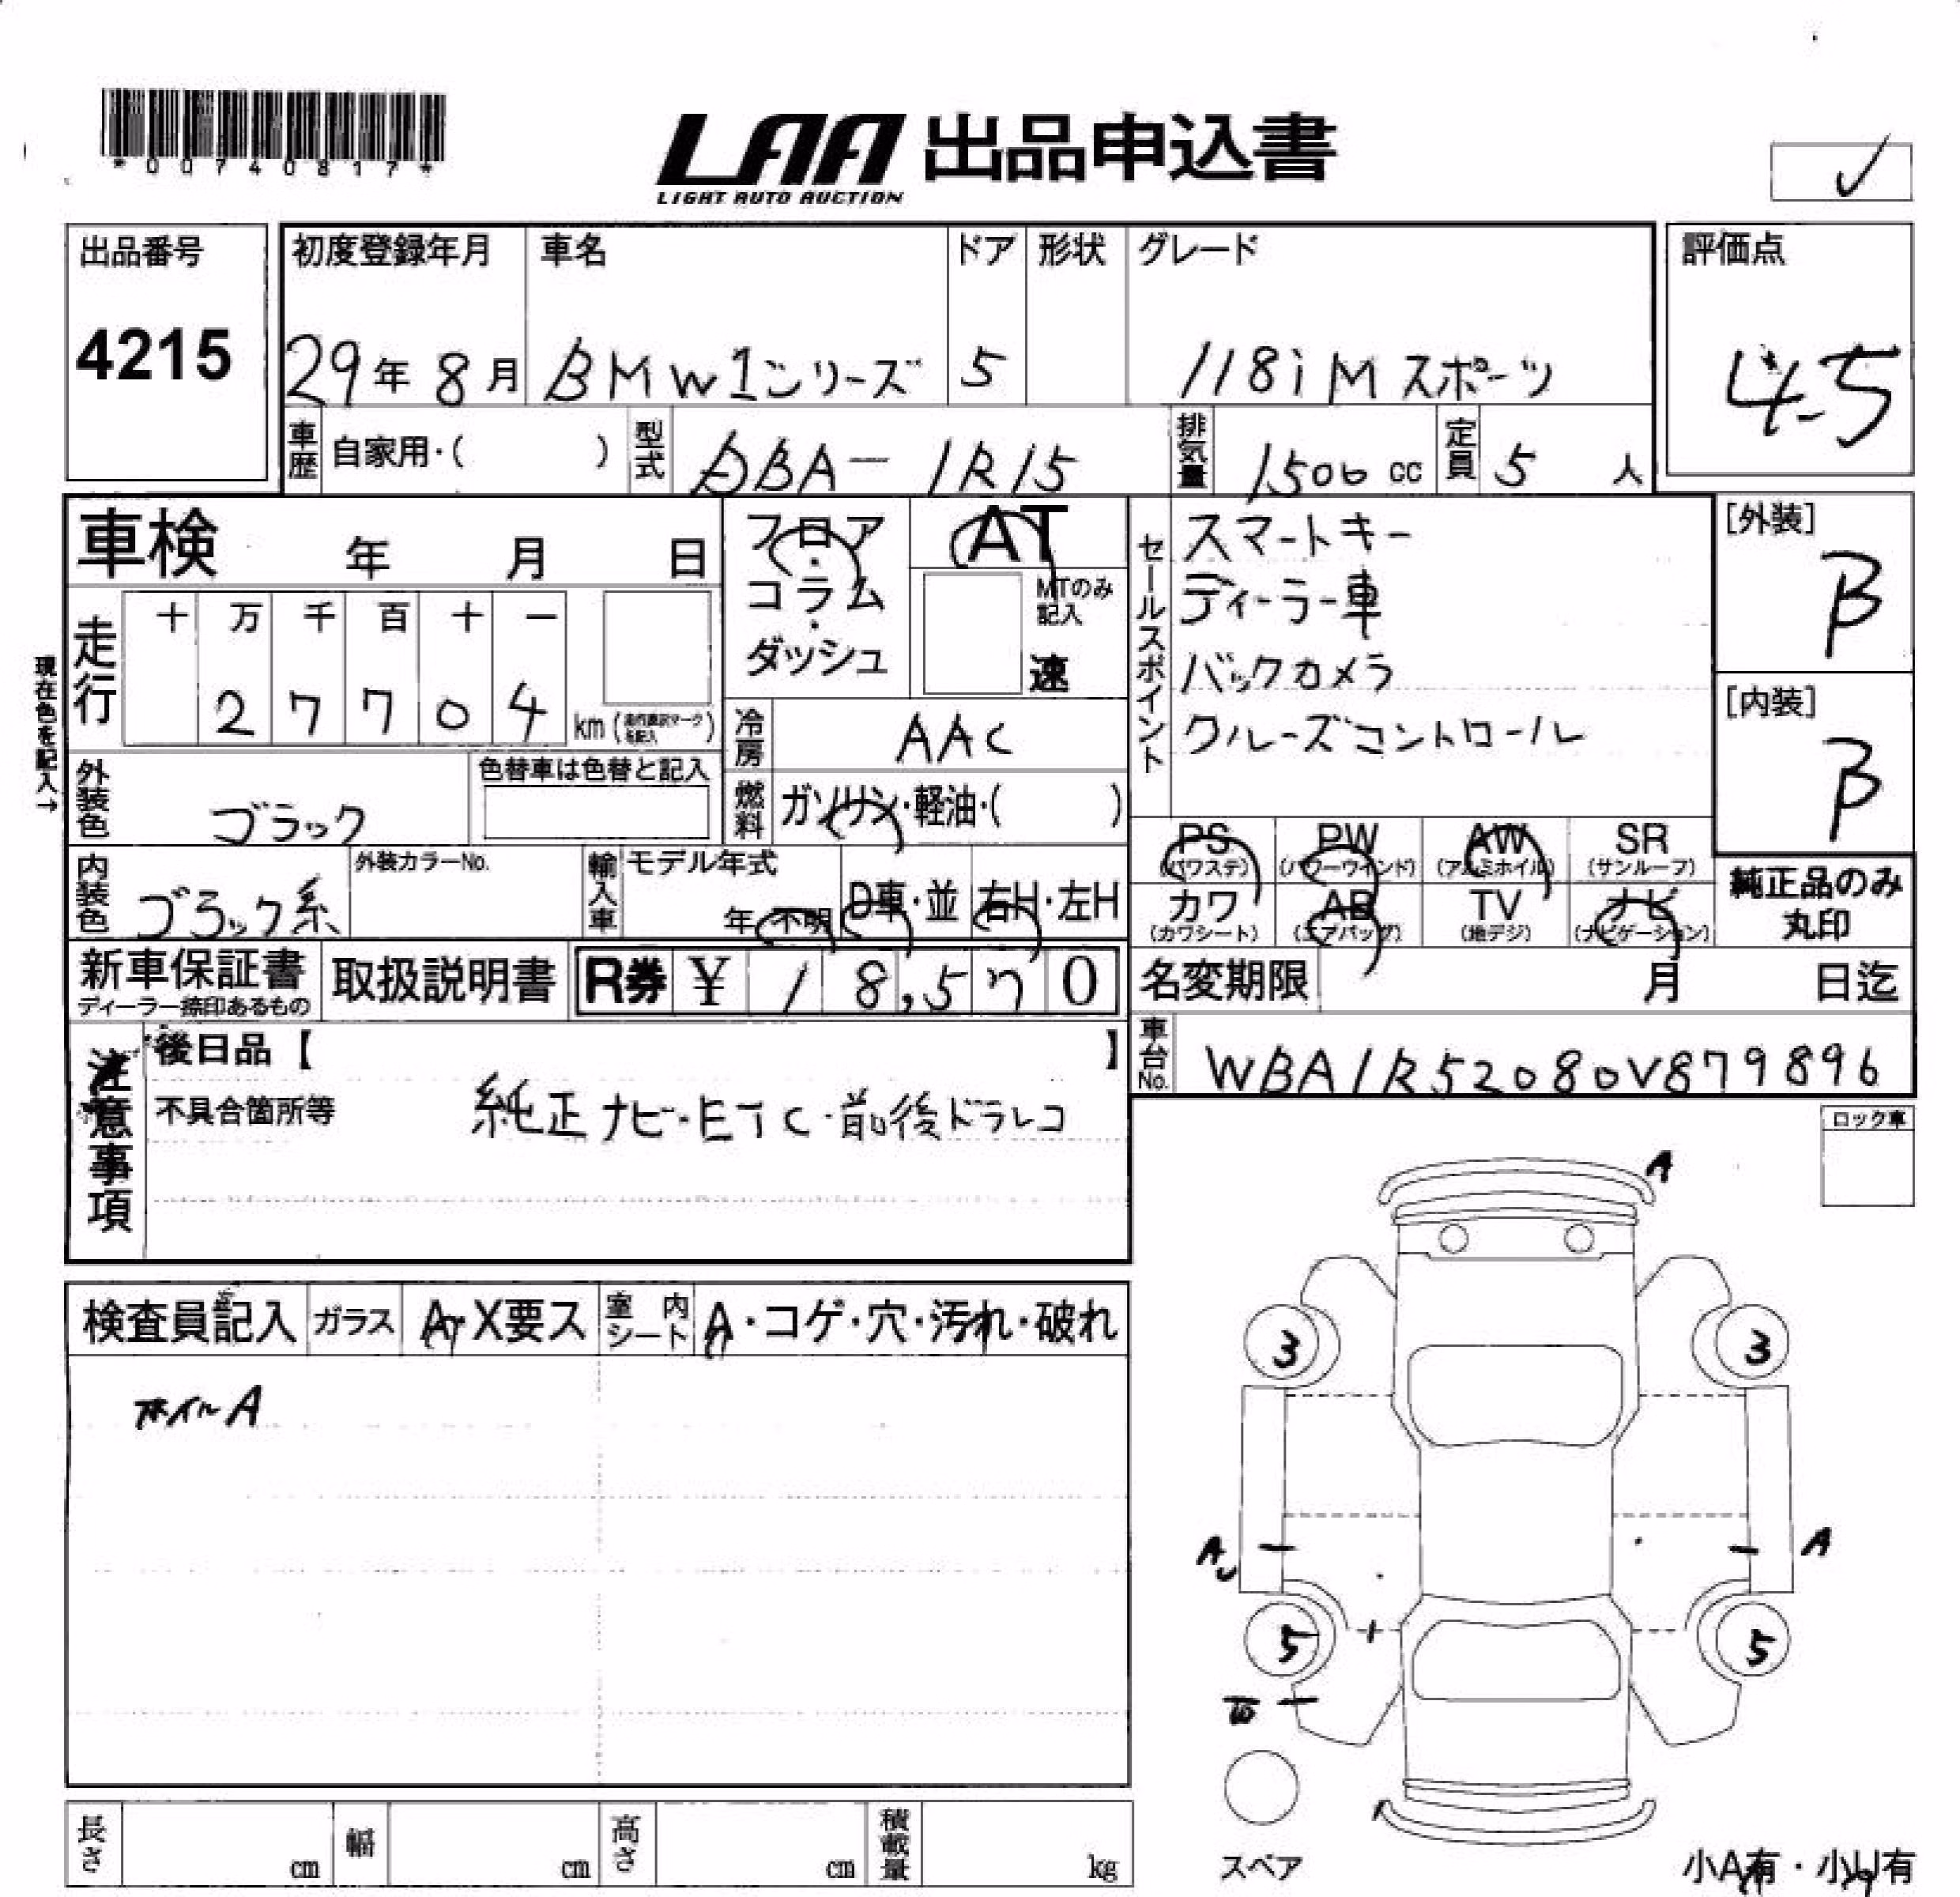 *00740817*
LAA 出品申込書
LIGHT AUTO AUCTION
出品番号
4215
初度登録年月 車名 ドア 形状 グレード
29年 8月 BMW1シリーズ 5 118i Mスポーツ
評価点
4.5
車歴 自家用・( ) 型式 DBA-1R15 排気量 1500 cc 定員 5 人
車検 年 月 日
フロア・コラム・ダッシュ
AT
MTのみ記入
速
セールスポイント
スマートキー
ディーラー車
バックカメラ
クルーズコントロール
[外装]
B
[内装]
B
現在色を記入→
走行 十 万 千 百 十 一
2 7 7 0 4 km
冷房 AAC
外装色 ブラック
色替車は色替と記入
燃料 ガソリン・軽油・( )
PS (パワステ) PW (パワーウインド) AW (アルミホイル) SR (サンルーフ)
カワ (カワシート) AB (エアバッグ) TV (地デジ) ナビ (ナビゲーション)
純正品のみ
丸印
内装色 ブラック系
外装カラーNo.
輸入車 モデル年式
年 不明 D車・並 右H・左H
新車保証書
ディーラー捺印あるもの
取扱説明書
R券 ¥ 18,570
名変期限 月 日迄
車台No. WBA1R52080V879896
注意事項
後日品【 】
不具合箇所等
純正ナビ・ETC・前後ドラレコ
ロック車
検査員記入 ガラス A・X要ス 室内シート A・コゲ・穴・汚れ・破れ
ホイルA
A
3 3
A A
5 5
スペア
小A有・小U有
長さ cm 幅 cm 高さ cm 積載量 kg